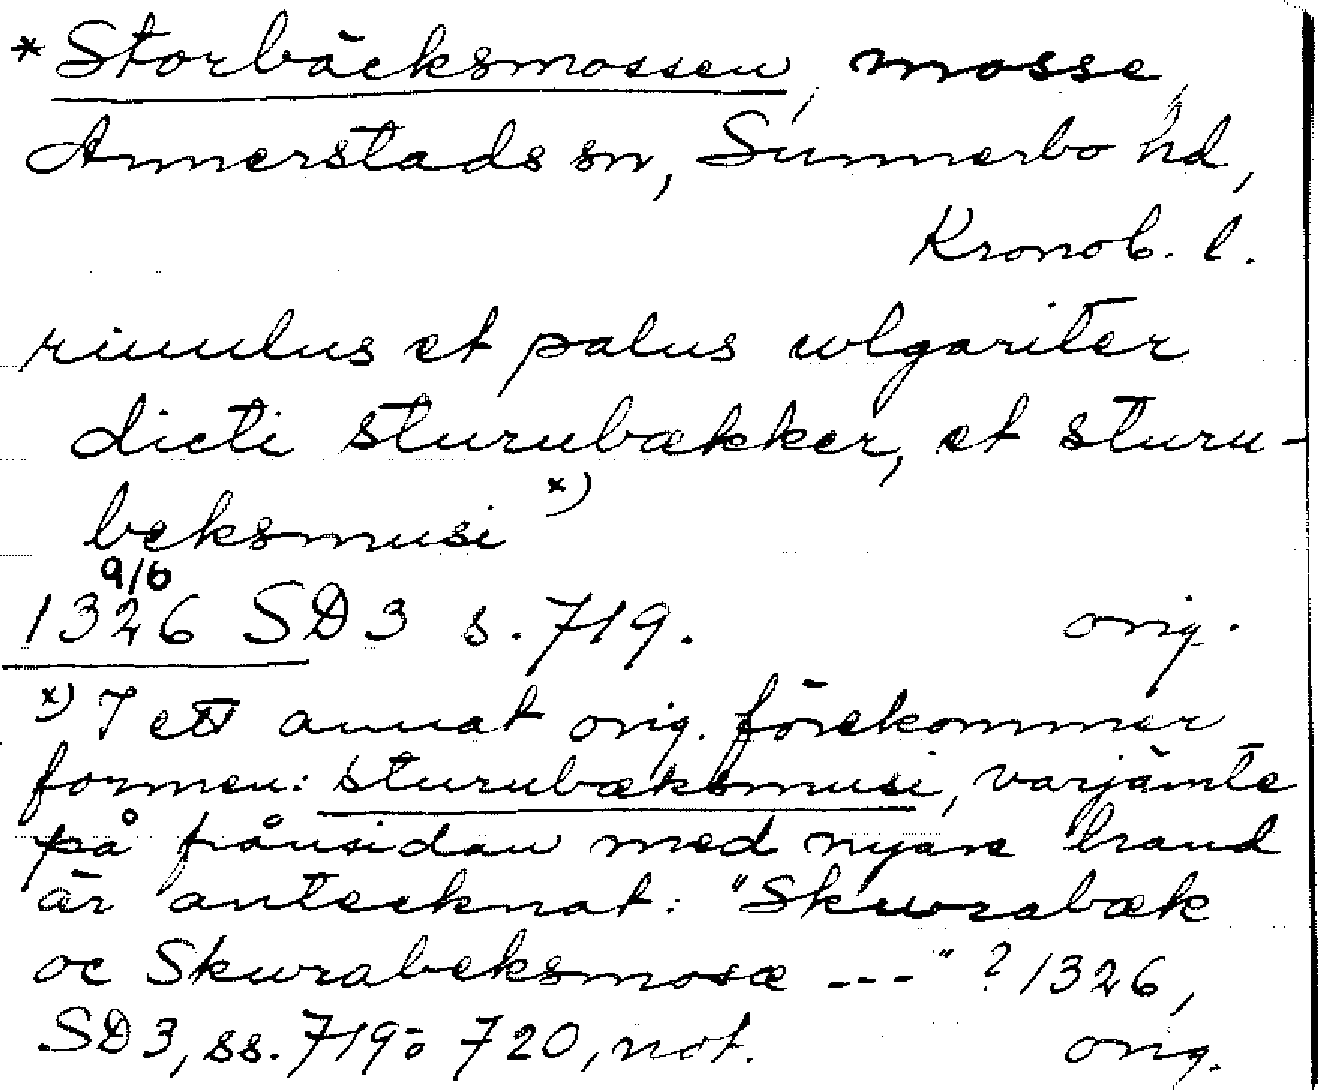 *Storbäcksmossen, mosse,
Annerstads sn, Sunnerbo hd,
Kronob. l.
riuulus et palus wlgariter
dicti sturubækker, et sturu-
beksmusi x)
9/6
1326 SD 3 s. 719. orig.
x) I ett annat orig. förekommer
formen: sturubæksmusi, varjämte
på frånsidan med nyare hand
är antecknat: "Skurabæk
oc Skurabeksmosæ ---" ? 1326,
SD 3, ss. 719 o 720, not. orig.